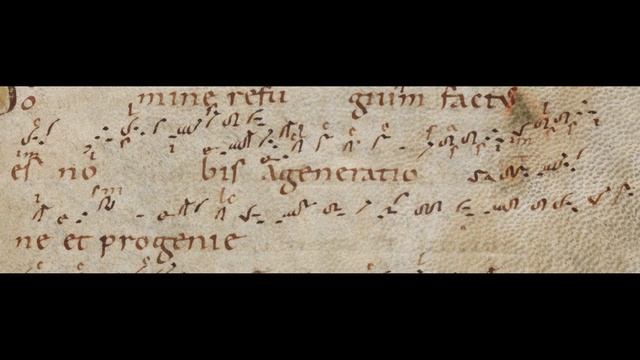 Do mine refu gium factus
es no bis ageneratio
ne et progenie